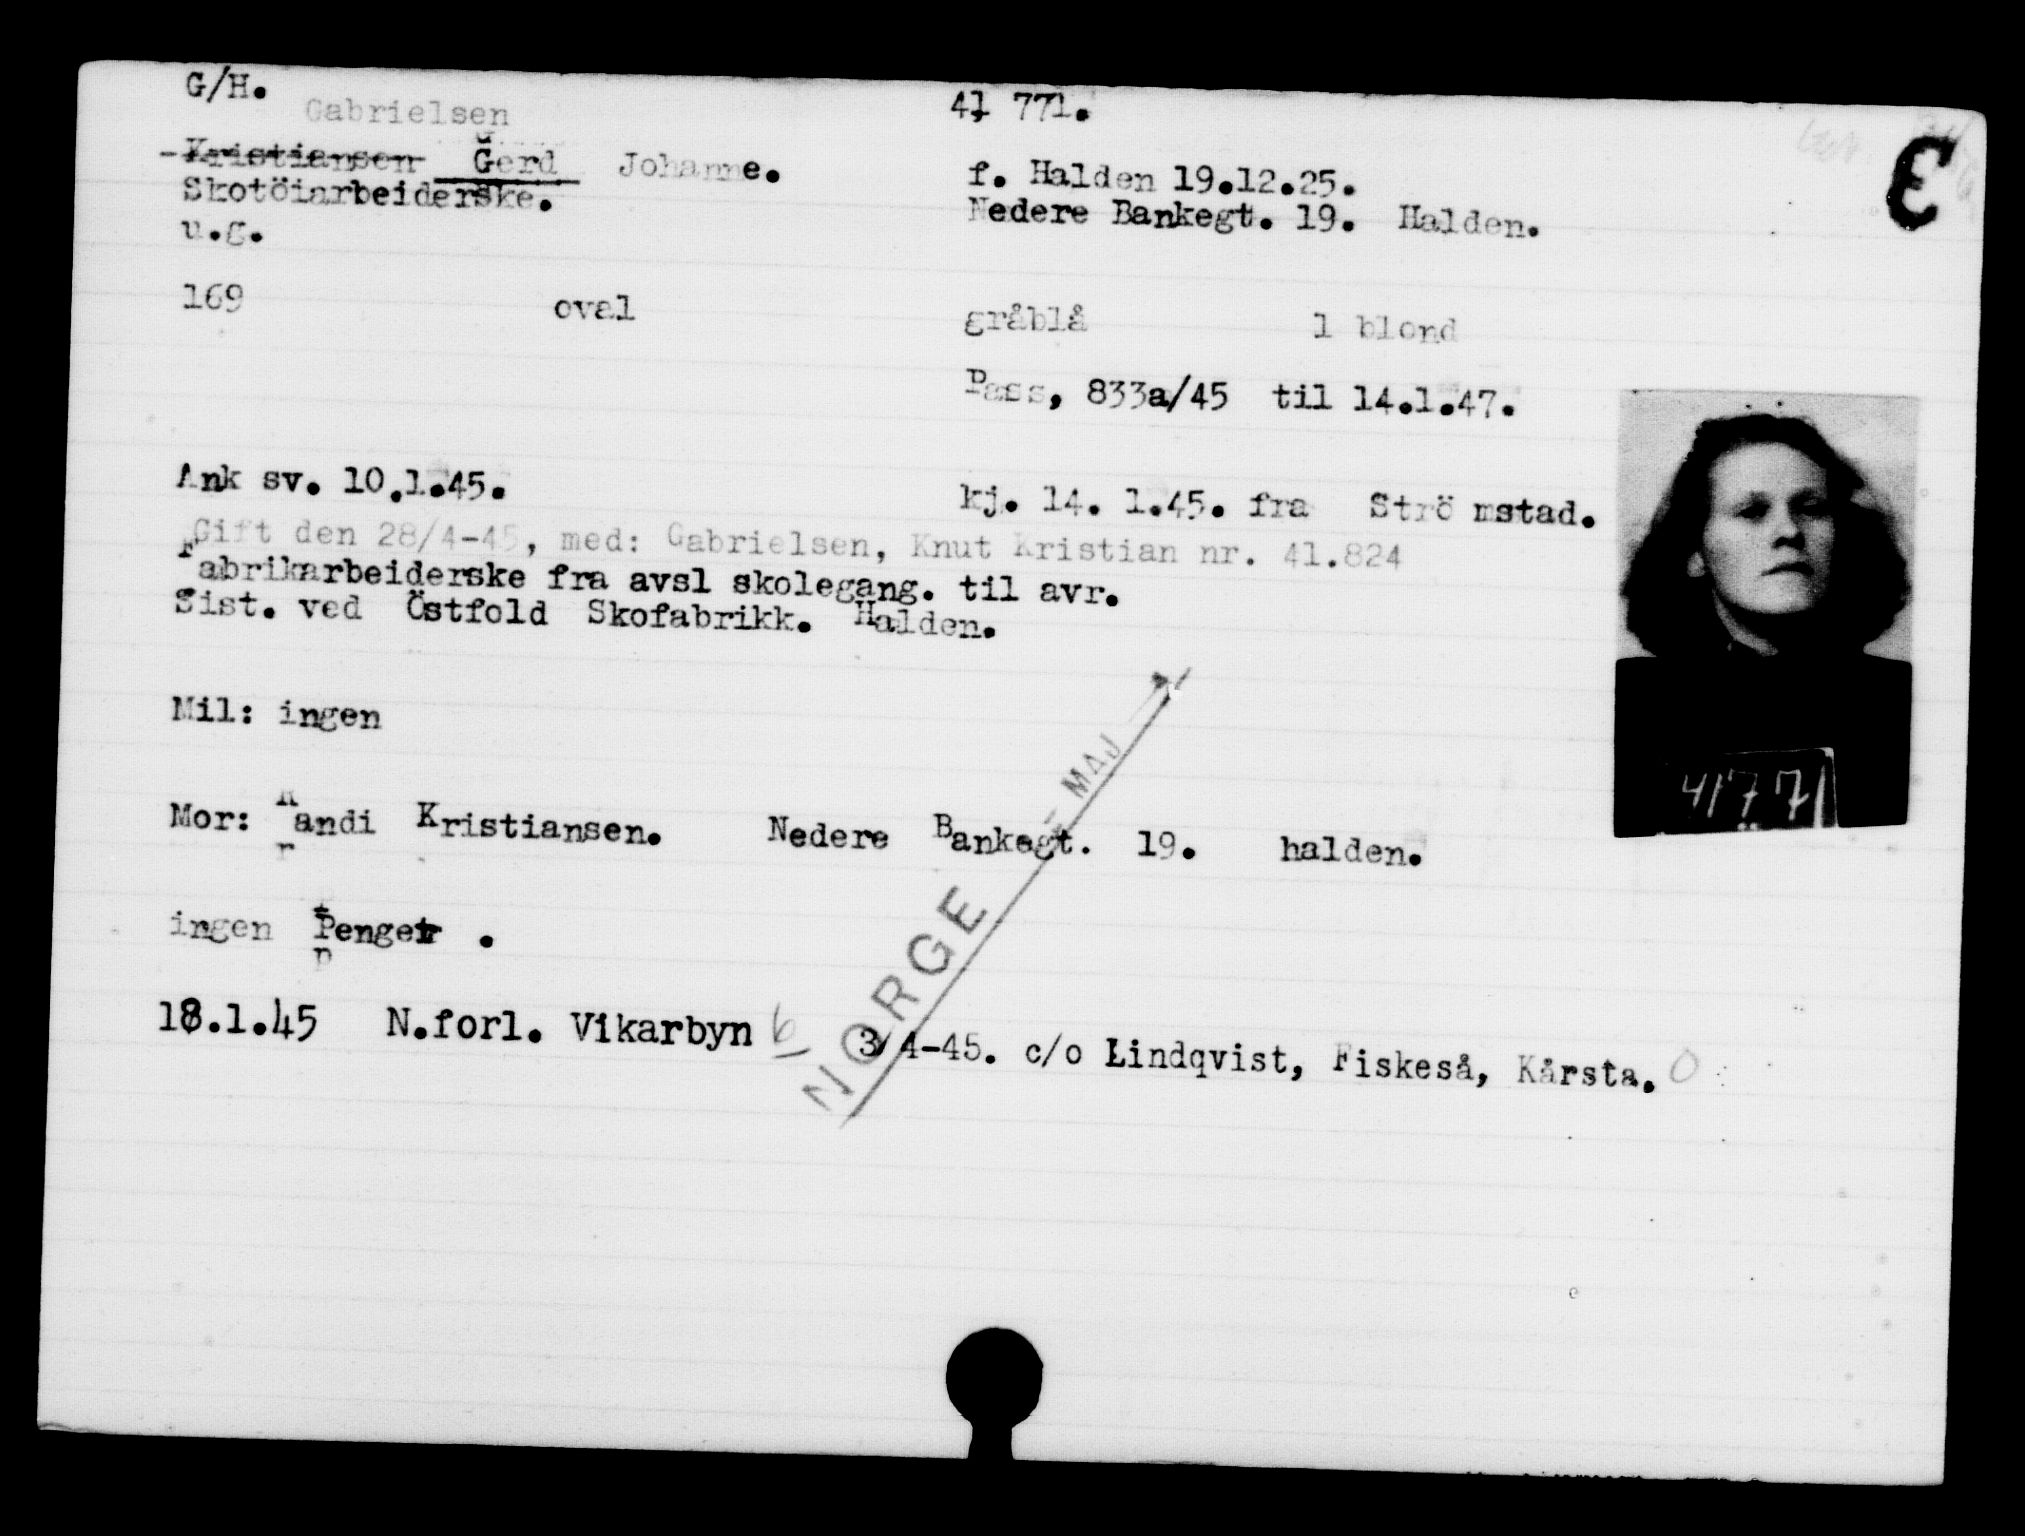 G/H.
41 771.
Gabrielsen
Kristiansen Gerd Johanne.
f. Halden 19.12.25.
Skotöiarbeiderske.
Nedere Bankegt. 19. Halden.
u.g.
169 oval gråblå l blond
Pass, 833a/45 til 14.1.47.
Ank sv. 10.1.45. kj. 14. 1.45. fra Strömstad.
Gift den 28/4-45, med: Gabrielsen, Knut Kristian nr. 41.824
Fabrikarbeiderske fra avsl skolegang. til avr.
Sist. ved Östfold Skofabrikk. Halden.
41771
Mil: ingen
Mor: Randi Kristiansen. Nedere Bankegt. 19. halden.
ingen Penger .
18.1.45 N.forl. Vikarbyn 3/4-45. c/o Lindqvist, Fiskeså, Kårsta.
NORGE MAJ